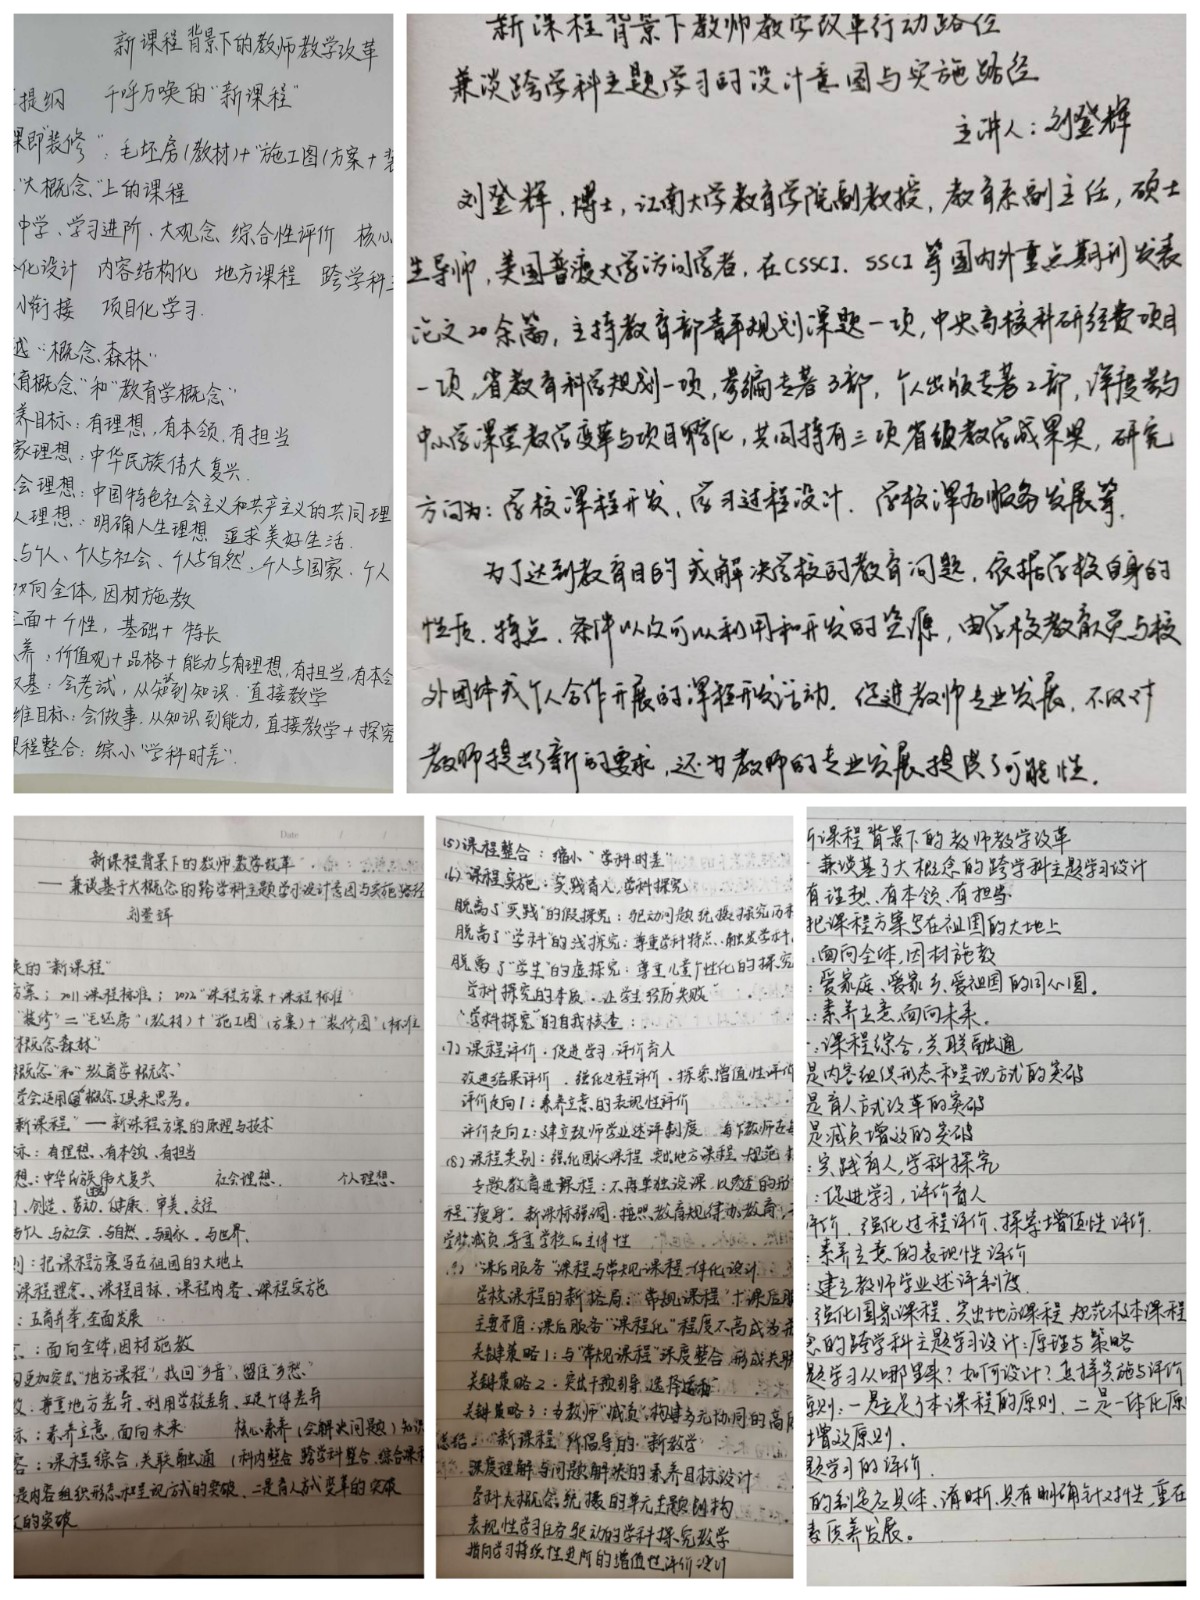 新课程背景下的教师教学改革
提纲 千呼万唤的"新课程"
课即"装修"：毛坯房(教材)+"施工图(方案+装
"大概念"上的课程
中学、学习进阶、大观念、综合性评价 核心
化设计 内容结构化 地方课程 跨学科主
小衔接 项目化学习.
越"概念森林"
育概念"和"教育学概念"
养目标：有理想,有本领,有担当
家理想：中华民族伟大复兴.
会理想：中国特色社会主义和共产主义的共同理
人理想：明确人生理想 追求美好生活.
与个人、个人与社会、个人与自然、个人与国家、个人
面向全体,因材施教
全面+个性, 基础+特长
养：价值观+品格+能力与有理想,有担当,有本
双基：会考试,从知识到知识.直接教学
维目标：会做事.从知识到能力,直接教学+探究
课程整合：综小"学科时差".
新课程背景下教师教学改革行动路径
兼谈跨学科主题学习的设计意图与实施路径
主讲人：刘登辉
刘登辉,博士,江南大学教育学院副教授,教育系副主任,硕士
生导师,美国普渡大学访问学者,在CSSCI、SSCI等国内外重点期刊发表
论文20余篇,主持教育部青年规划课题一项,中央高校科研经费项目
一项,省教育科学规划一项,参编专著3部,个人出版专著2部,深度参与
中小学课堂教学变革与项目孵化,共同持有三项省级教学成果奖,研究
方向为：学校课程开发、学习过程设计、学校课后服务发展等.
为了达到教育目的或解决学校的教育问题,依据学校自身的
性质、特点、条件以及可以利用和开发的资源,由学校教育人员与校
外团体或个人合作开展的课程开发活动.促进教师专业发展,不仅对
教师提出了新的要求,还为教师的专业发展提供了可能性.
Date / /
新课程背景下的教师教学改革
——兼谈基于大概念的跨学科主题学习设计意图与实施路径
刘登辉
唤的"新课程"
方案；2011课程标准；2022"课程方案+课程标准
"装修"="毛坯房"(教材)+"施工图(方案)+"装修图"(标准
"概念森林"
概念"和"教育学概念"
学会运用概念工具来思考。
新课程"——新课程方案的原理与技术
标：有理想、有本领、有担当
想：中华民族伟大复兴 社会理想. 个人理想.
、创造、劳动、健康、审美、交往
与个人、与社会、与自然、与国家、与世界、
则：把课程方案写在祖国的大地上
课程理念、课程目标、课程内容、课程实施
：五育并举,全面发展
：面向全体,因材施教
更加突出"地方课程",找回"乡音",留住"乡愁"
：尊重地方差异、利用学校差异、正视个体差异
标：素养立意,面向未来 核心素养(会解决问题)知识
容：课程综合,关联融通 (科内整合 跨学科整合 综合课程
是内容组织形态和呈现方式的突破、二是育人方式变革的突破
的突破
(5)课程整合：缩小"学科时差"
(6)课程实施：实践育人,学科探究
脱离了"实践"的假探究：驱动问题统摄探究历程
脱离了"学科"的浅探究：尊重学科特点、触发学科
脱离了"学生"的虚探究：尊重儿童个性化的探究
学科探究的本质：让学生经历"失败"
"学科探究"的自我核查：
(7)课程评价：促进学习,评价育人
改进结果评价、强化过程评价、探索增值性评价
评价走向1：素养立意的表现性评价
评价走向2：建立教师学业述评制度 每个教师在每
(8)课程类别：强化国家课程、突出地方课程、规范
专题教育进课程：不再单独设课,以渗透的形
程"瘦身"、新课标强调：按照教育规律办教育、
学校减负、尊重学校的主体性
(9)"课后服务"课程与常规课程一体化设计
学校课程的新格局："常规课程"+课后服
主要矛盾：课后服务"课程化"程度不高成为
关键策略1：与"常规课程"深度整合,形成关联
关键策略2：突出干预引导,选择适格
关键策略3：为教师"减负",构建多元协同的高质
总结："新课程"所倡导的"新教学"
深度理解与问题解决的素养目标设计
学科大概念统摄的单元主题创构
表现性学习任务驱动的学科探究教学
指向学习持续性进阶的增值性评价设计
新课程背景下的教师教学改革
兼谈基于大概念的跨学科主题学习设计
有理想、有本领、有担当
把课程方案写在祖国的大地上
：面向全体,因材施教
：爱家庭、爱家乡、爱祖国的同心圆。
：素养立意,面向未来.
：课程综合,关联融通
是内容组织形态和呈现方式的突破
是育人方式改革的突破
是减负增效的突破
：实践育人,学科探究
：促进学习,评价育人
评价、强化过程评价、探索增值性评价.
：素养立意的表现性评价
：建立教师学业述评制度.
：强化国家课程、突出地方课程 规范校本课程
念的跨学科主题学习设计：原理与策略
题学习从哪里来？如何设计？怎样实施与评价
原则：一是立足于本课程的原则、二是一体化原
增效原则.
题学习的评价.
的制定应具体、清晰、具有明确针对性,重在
素质养发展。